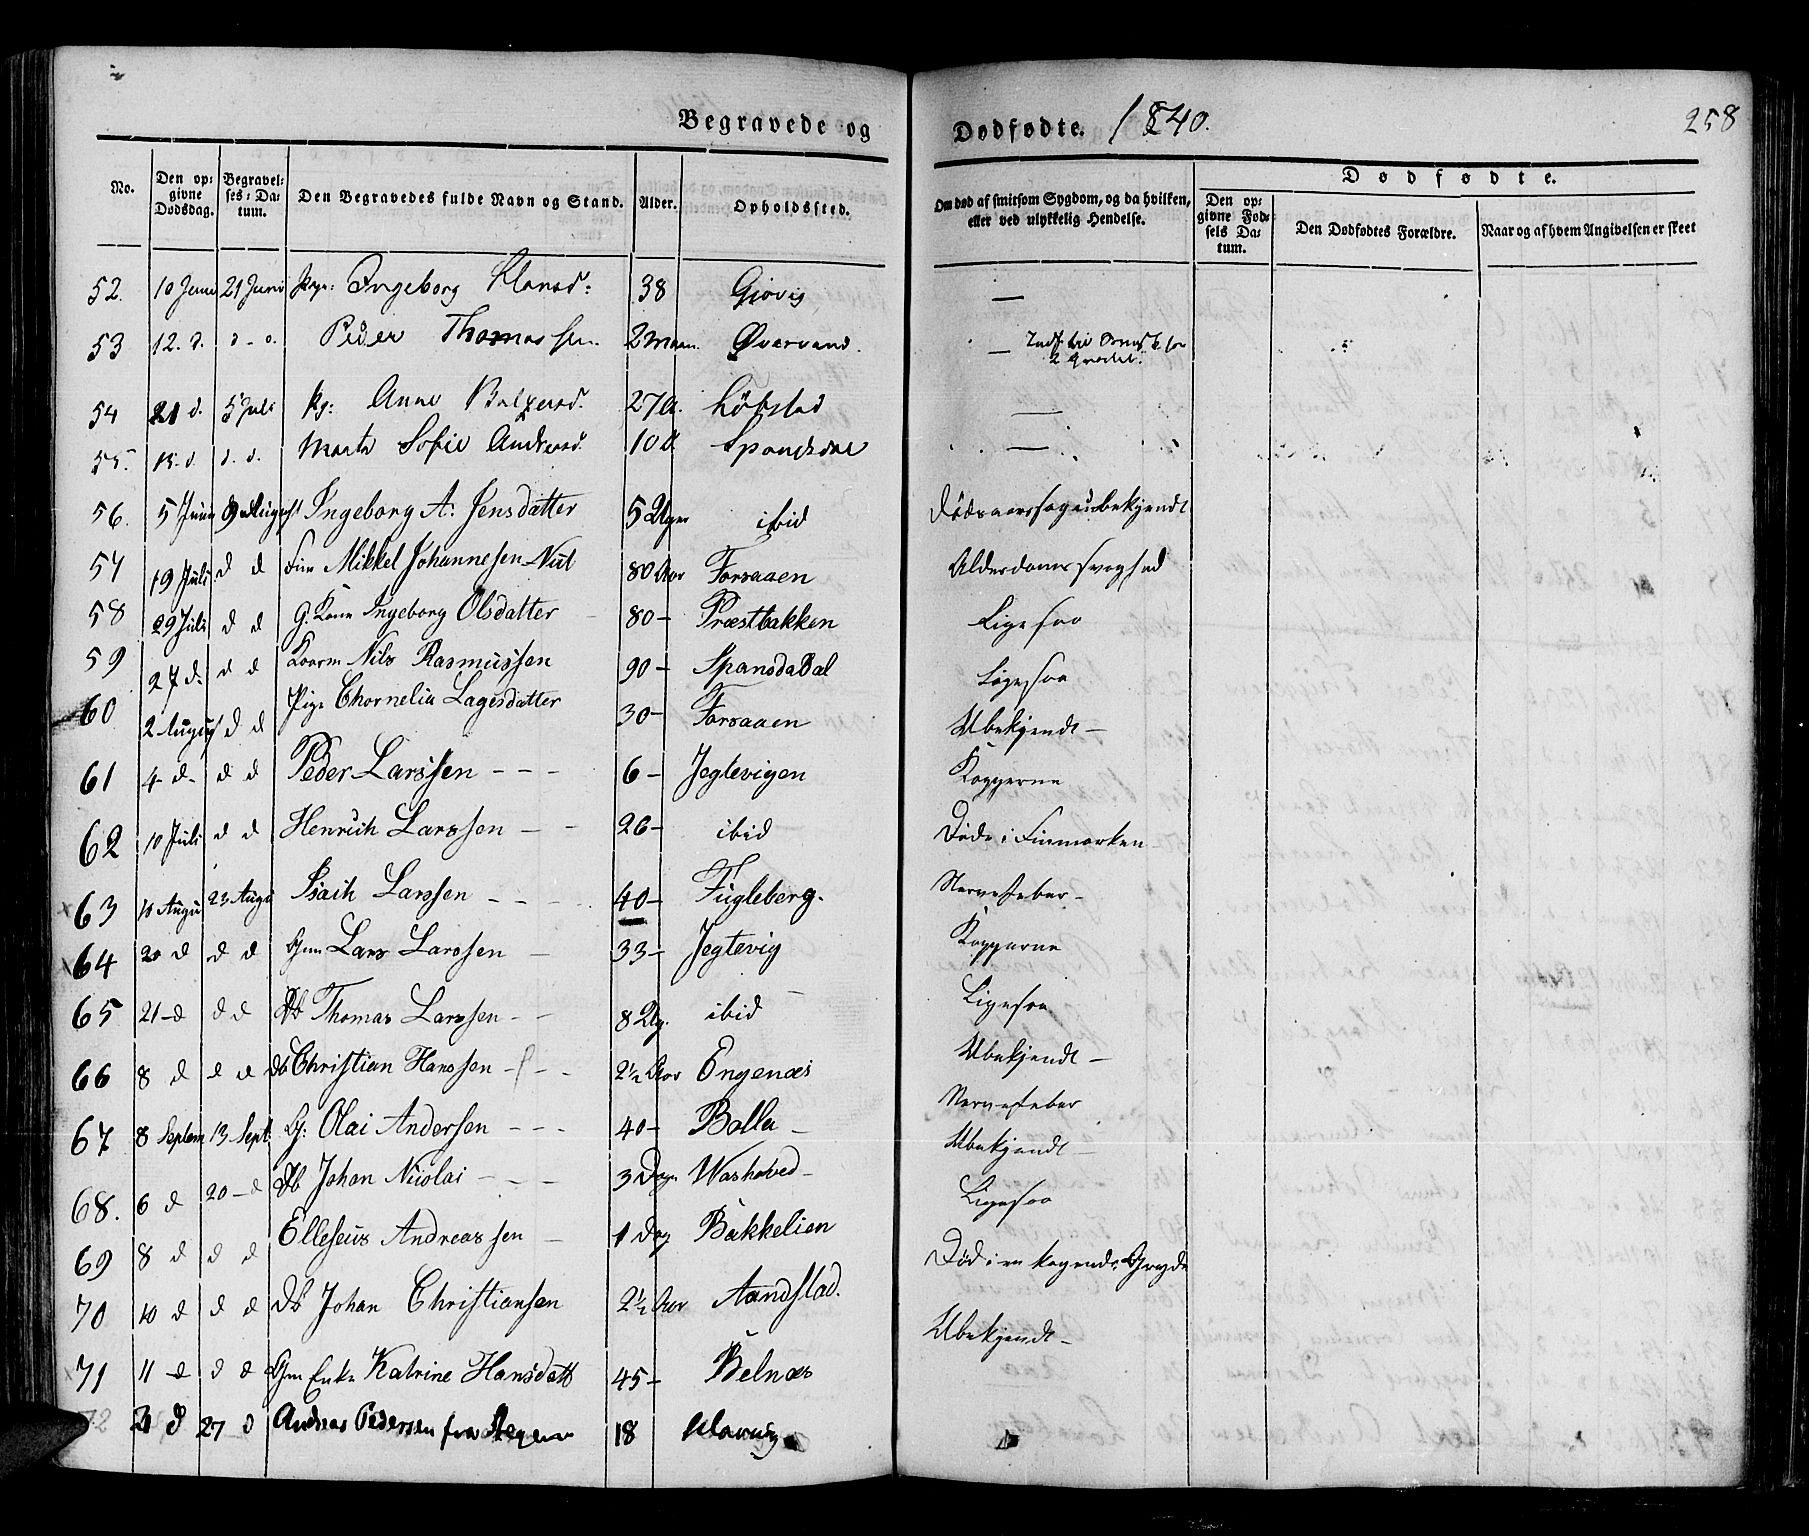 Begravede og
Dødfødte. 1840.
258
No.
Den opgivne Dødsdag.
Begravelses-Datum.
Den Begravedes fulde Navn og Stand.
Alder.
Opholdssted.
Om død af smitsom Sygdom, og da hvilken, eller ved ulykkelig Hendelse.
Dødfødte.
Den opgivne Fødsels Datum.
Den Dødfødtes Forældre.
Naar og af hvem Angivelsen er skeet
52. 10 Juni 21 Juni Ingeborg 38 Giøvig —
53 12. d. d. o. Peder Thomassen 2 Maan. Øvervand. —
54 21 d. 5 Juli Anne 27 A. Løbstad —
55. 15. d. d. d. Marta Sofie Andersd. 10 d Spansdal —
56. 5 Juni 9 August Ingeborg A: Jensdatter 5 Uger ibid Dødsaarsag ubekjendt
57 19 Juli d d Fin Mikkel Johannesen Nut 80 Aar Forsaaen Alderdoms svaghed
58 29 Juli d d G. Kone Ingeborg Olsdatter 80 — Præstbakken Ligesaa
59 27 d. d d Nils Rasmussen 90 — Spansdabal Ligesaa
60 2 August d d Pige Chornelia Lagesdatter 30 — Forsaaen Ubekjendt —
61 4 d. d d Peder Larssen - - - 6 — Jegtevigen Kopperne
62 10 Juli d d Henrich Larssen — - 26 — ibid Døde i Finmarken
63 10 Augu 23 Augu Isaih Larssen - - - 40 — Fugleberg. Nervefeber —
64 20 d d d Gm Lars Larssen — 33 — Jegtevig Kopperne
65 21 — d d d Db Thomas Larssen - - 8 Ug. ibid Ligesaa
66 8 d d d Db Christian Hanssen - - - 2½ Aar Engenæs Ubekjendt —
67 8 Septem 13 Sept G: Olai Andersen - - - 40 — Balla — Nervefeber
68. 6 d 20 — d Db Johan Nicolai - - - 3 Dage Washoved — Ubekjendt —
69 8 d d d Elleseus Andreassen — 1 Dag Bakkelien Ligesaa
70 10 d d d Db Johan Christiansen 2½ Aar Aandstad. Død i en kogende Gryde
71 11 — d d d Gm Enke Katrine Hansdatt 45 — Belnæs Ubekjendt —
72 21 d 27 d Andreas Pedersen fra 18